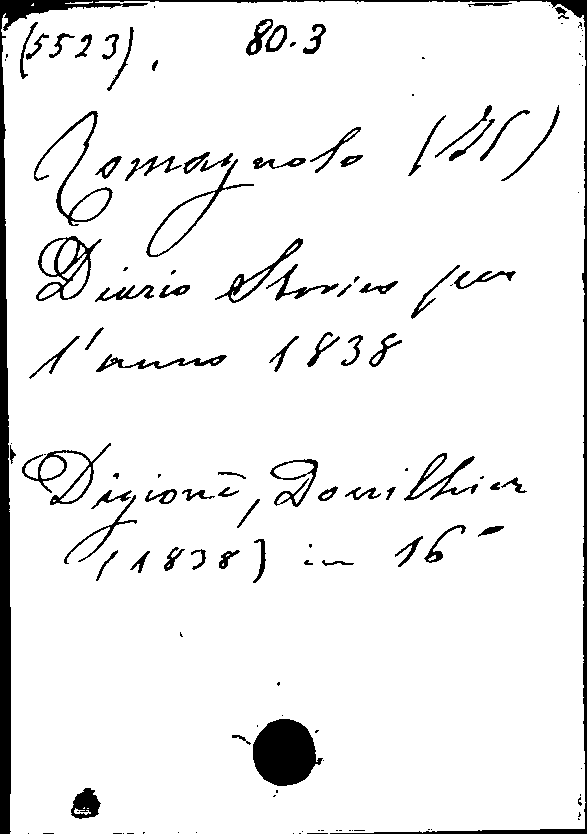 (5523). 80.3
Romagnolo (Il)
Diario Storico per
l'anno 1838
Digione, Douillier
(1838) in 16°